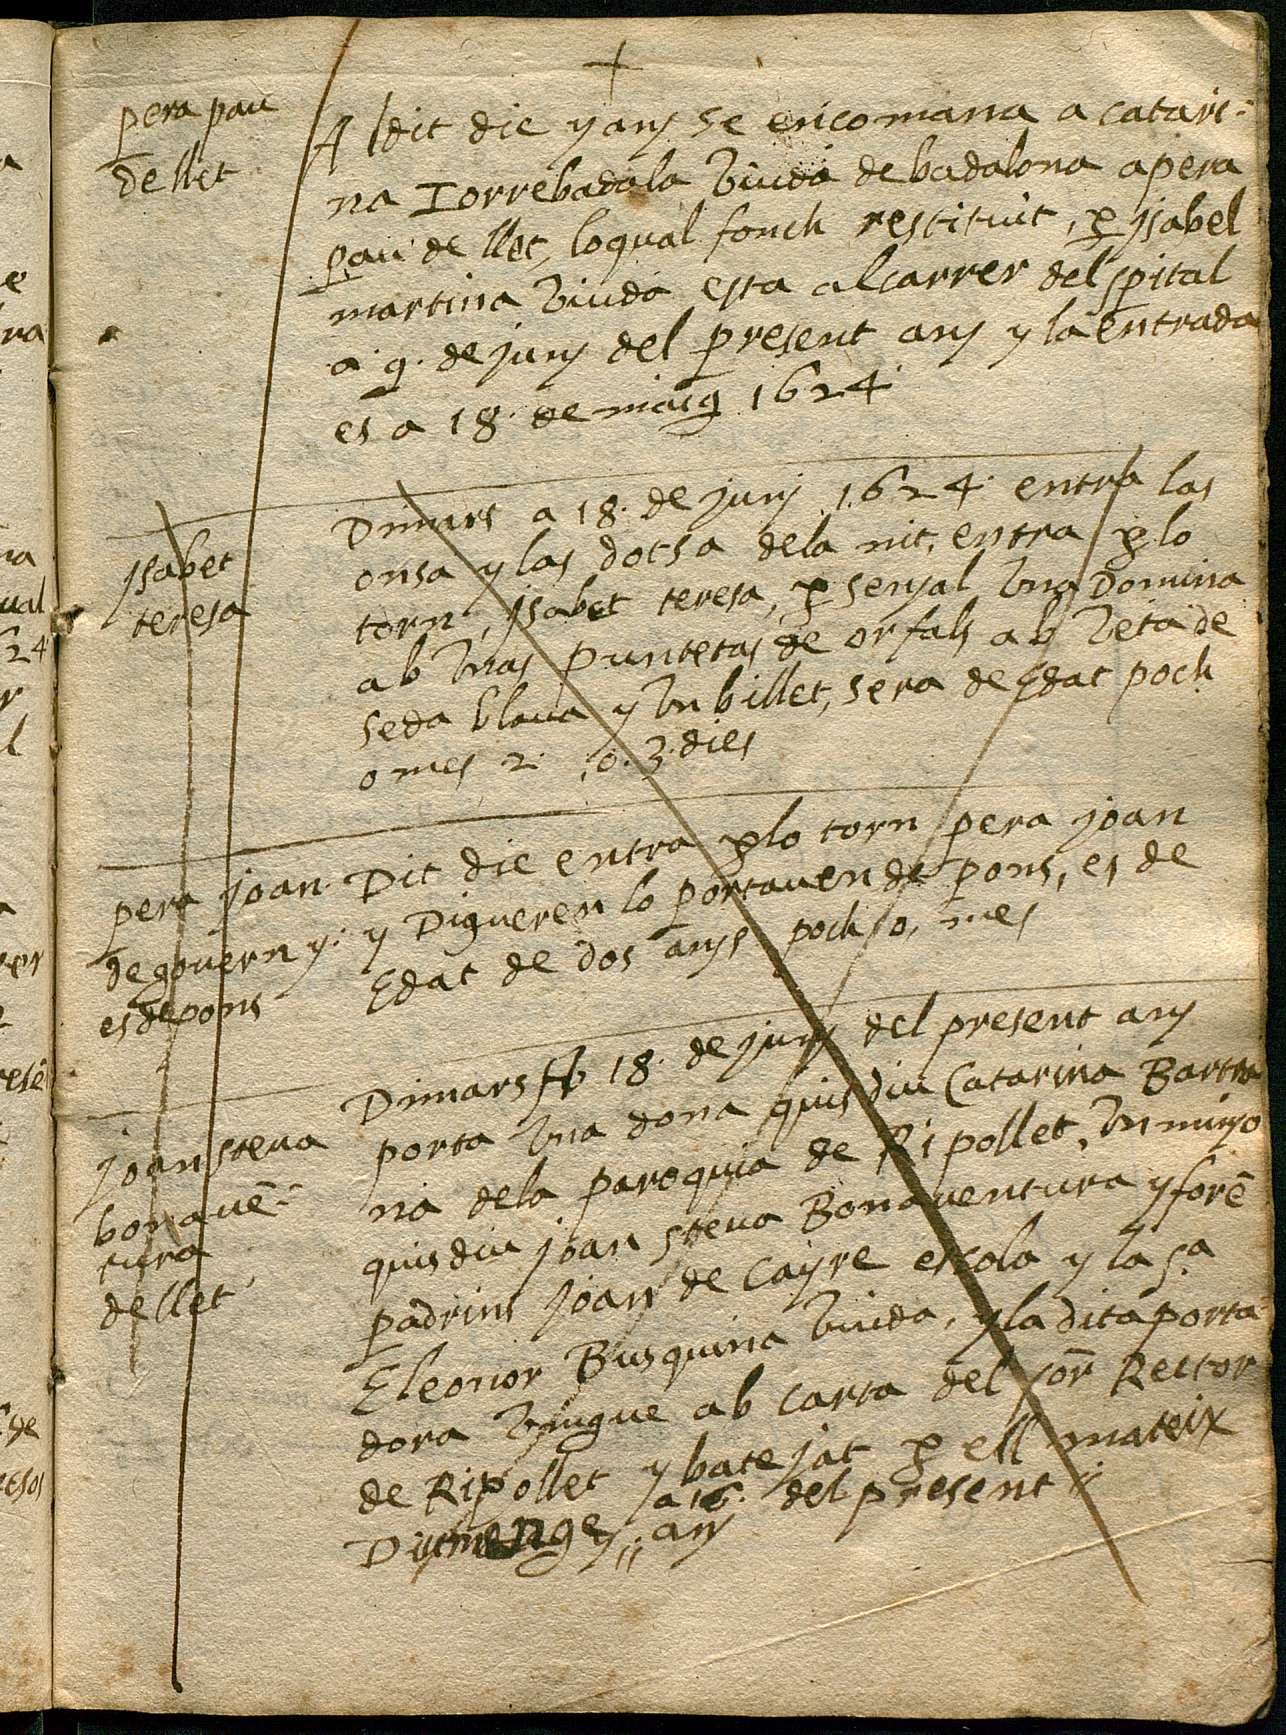 pera pau
de llet
A dit die y any se encomana a catari-
na Torrebadala viuda de badalona apera
pau de llet, loqual fonch restituit, p ysabel
martina viuda esta al carrer delspital
a 9. de juny del present any y la entrada
es a 18. de maig 1624
ysabet
teresa
Dimars a 18. de juny 1624 entra las
onsa y las dotsa dela nit, entra p lo
torn, ysabet teresa, p senyal vna Domina
ab vnas puntetas de orfals ab veta de
seda blaua y vn billet, sera de edat poch
o mes 2. o. 3. dies
pera joan
de gouern y
es de pons
Dit die entra p lo torn pera joan
y Digueren lo portauen de pons, es de
Edat de dos anys poch o, mes
joan steua
bonauē-
tura
de llet
Dimars A 18. de juny del present any
porta vna dona quis diu Catarina Bartra
na dela paroquia de Ripollet, vn minyo
quis diu joan steua Bonauentura y forē
padrins joan de Cayre escola y la sa
Eleonor Busquina viuda, y la dita porta
dora vingue ab carta del sor Rector
de Ripollet y batejat p ell mateix
a 16.
Diumenge, any del present